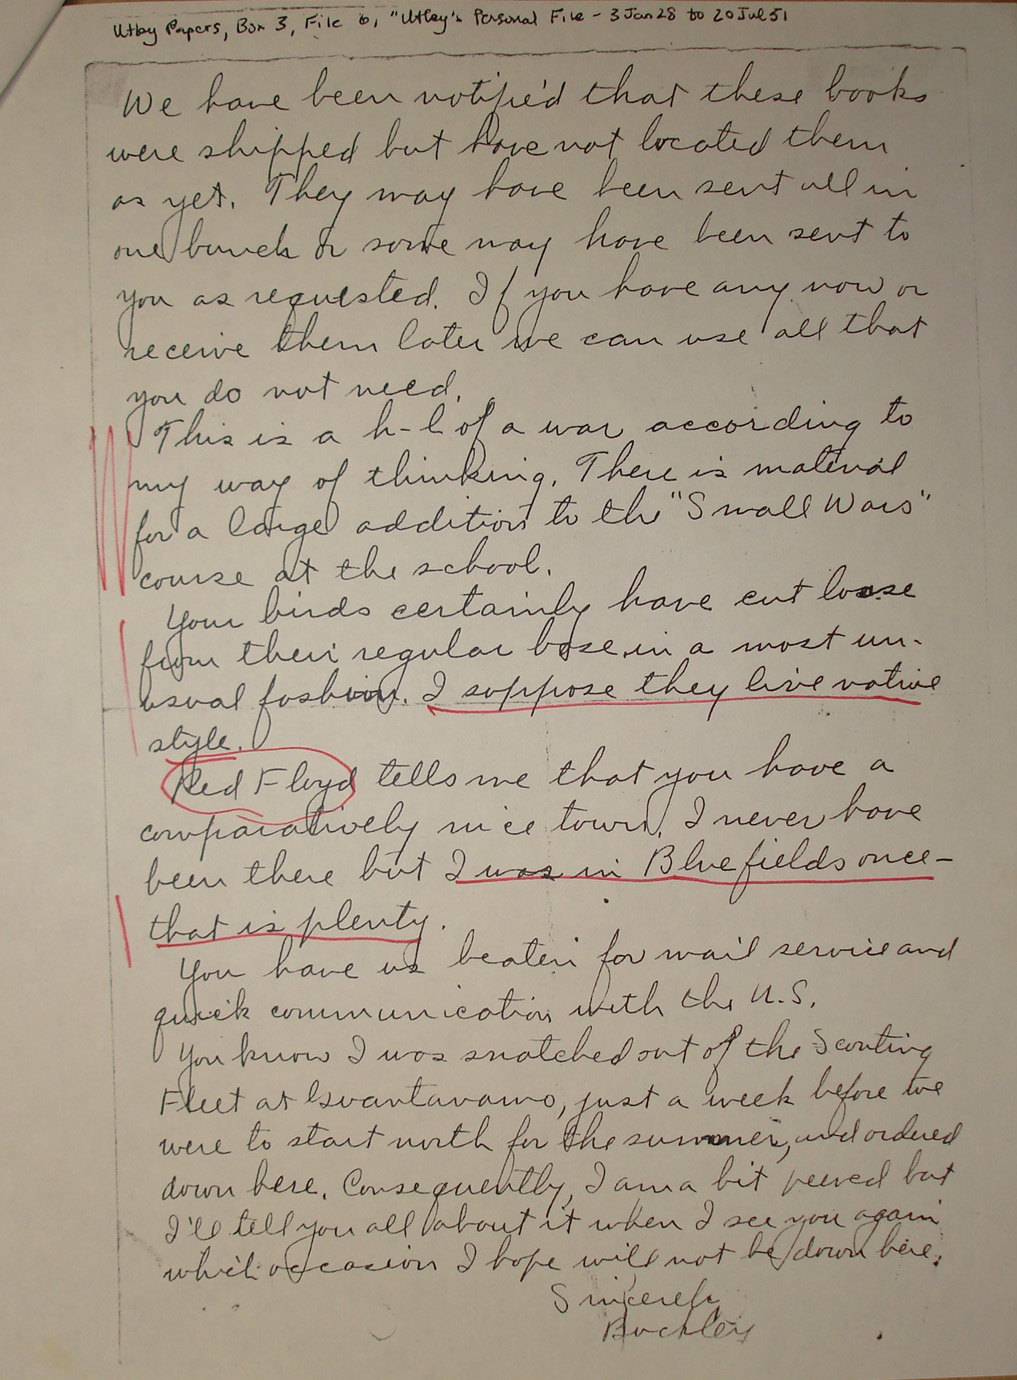 Utley Papers, Box 3, File 6, "Utley's Personal File - 3 Jan 28 to 20 Jul 51
We have been notified that these books
were shipped but have not located them
as yet. They may have been sent all in
one bunch or some may have been sent to
you as requested. If you have any now or
receive them later we can use all that
you do not need.
This is a h-l of a war according to
my way of thinking. There is material
for a large addition to the "Small Wars"
course at the school.
Your birds certainly have cut loose
from their regular base in a most un-
usual fashion. I suppose they live native
style.
Red Floyd tells me that you have a
comparatively nice town. I never have
been there but I was in Bluefields once-
that is plenty.
You have us beaten for mail service and
quick communication with the U.S.
You know I was snatched out of the Scouting
Fleet at Guantanamo, just a week before we
were to start north for the summer, and ordered
down here. Consequently, I am a bit peeved but
I'll tell you all about it when I see you again
which occasion I hope will not be down here.
Sincerely
Buckley